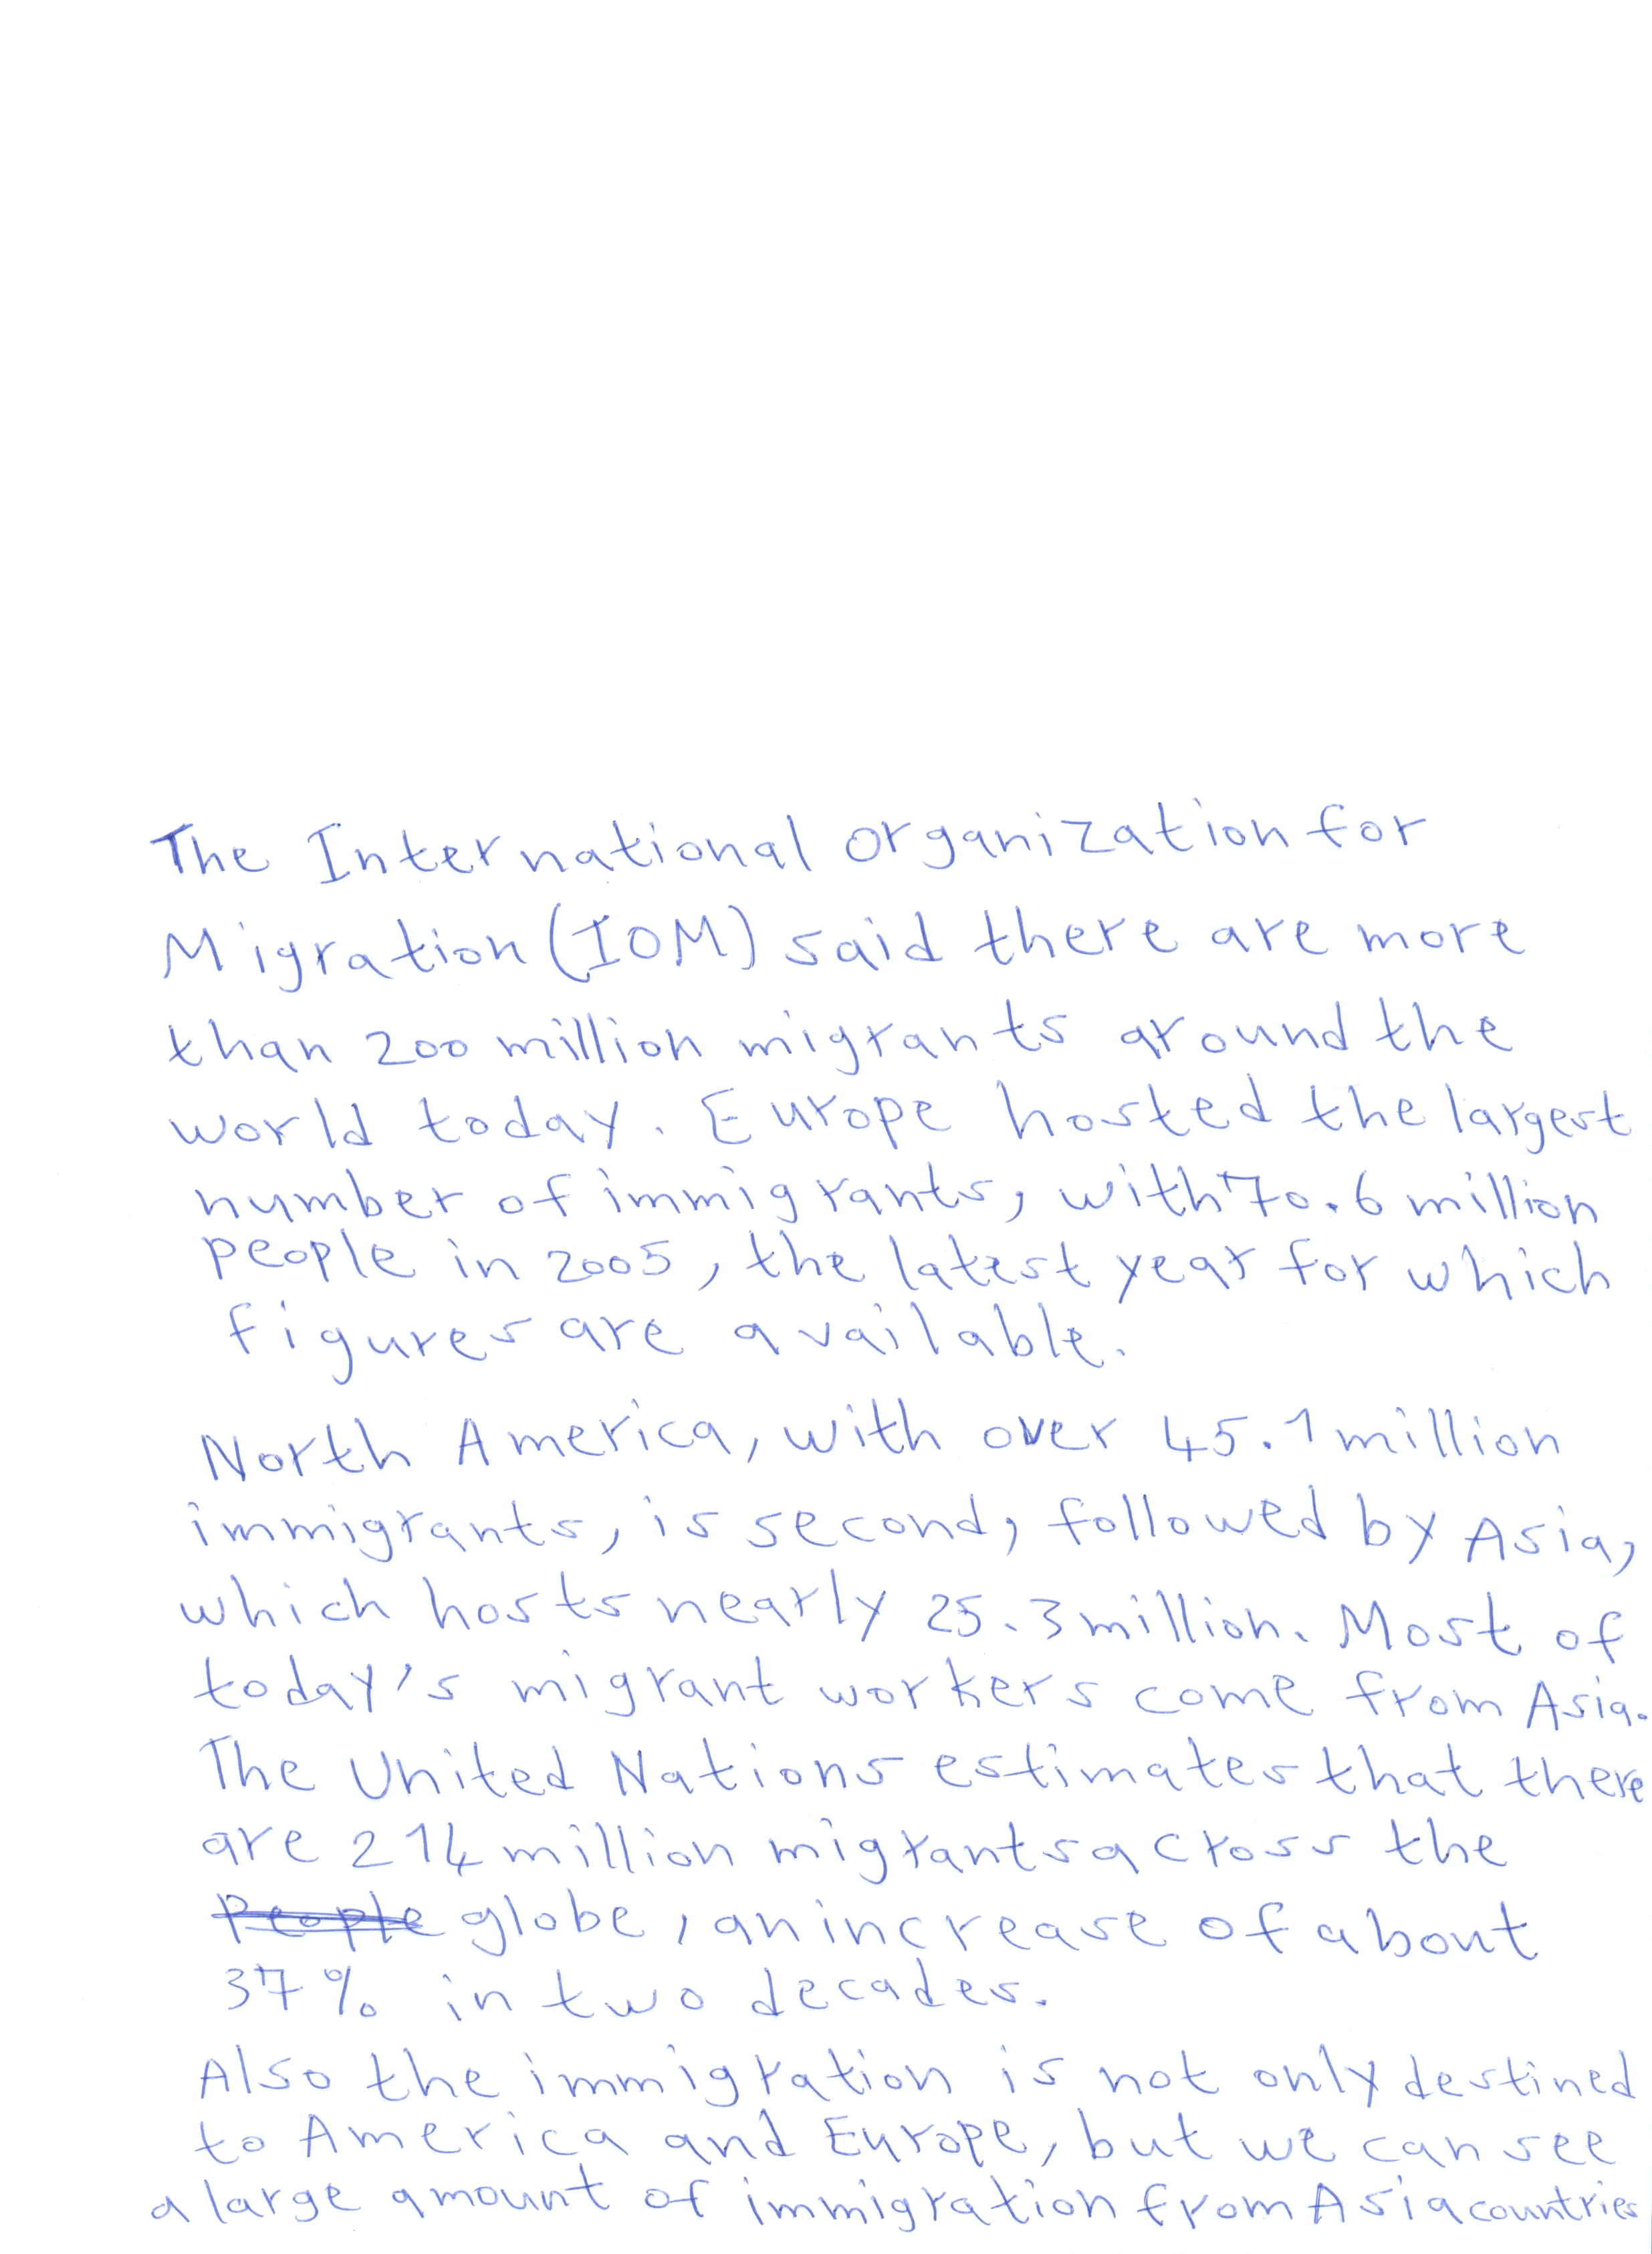 The International organization for
Migration (IOM) said there are more
than 200 million migrants around the
world today. Europe hosted the largest
number of immigrants, with 70.6 million
people in 2005, the latest year for which
figures are available.
North America, with over 45.1 million
immigrants, is second, followed by Asia,
which hosts nearly 25.3 million. Most of
today's migrant workers come from Asia.
The United Nations estimates that there
are 214 million migrants across the
People globe, an increase of about
37% in two decades.
Also the immigration is not only destined
to America and Europe, but we can see
a large amount of immigration from Asia countries